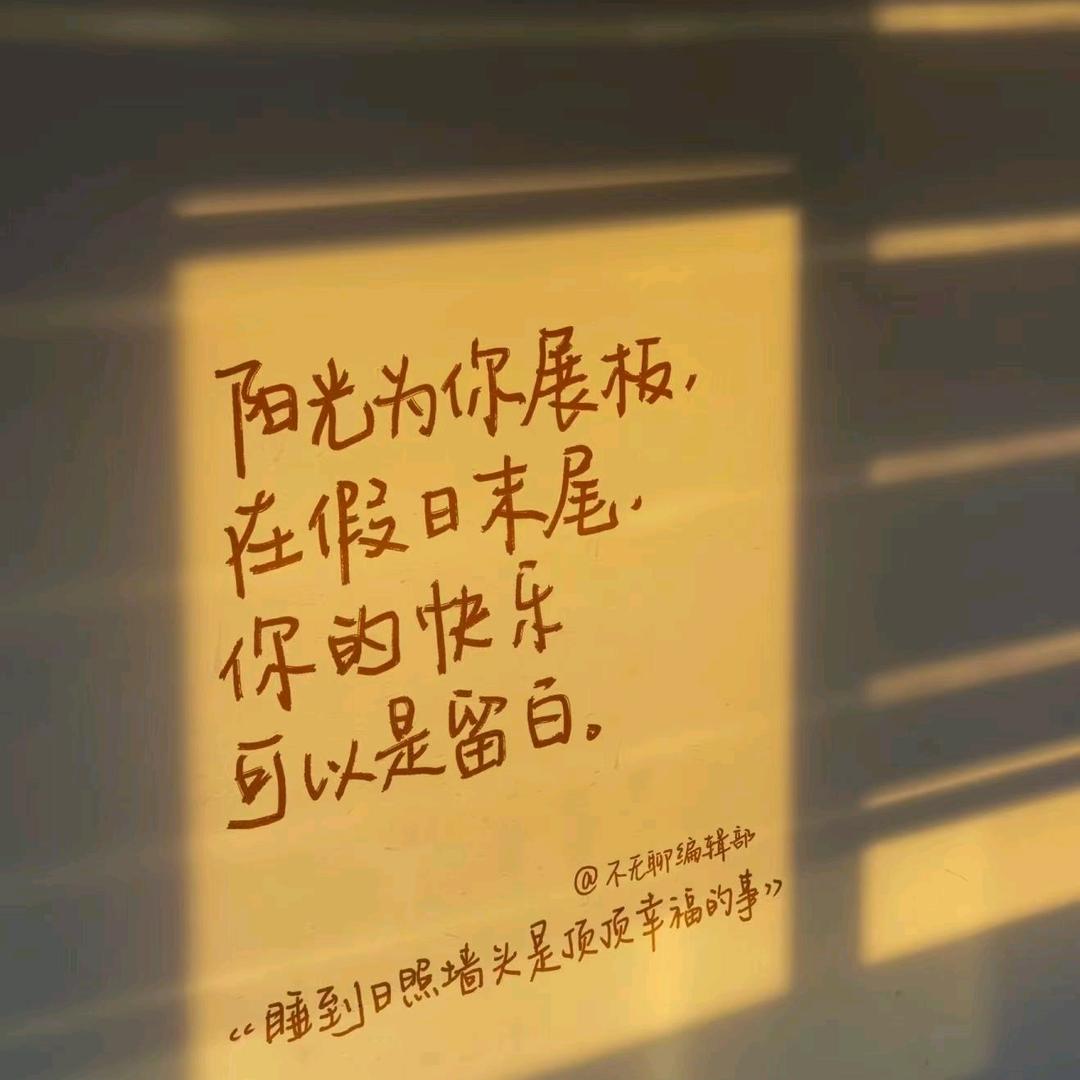 阳光为你展板，
在假日末尾，
你的快乐
可以是留白。
@不无聊编辑部
“睡到日照墙头是顶顶幸福的事”